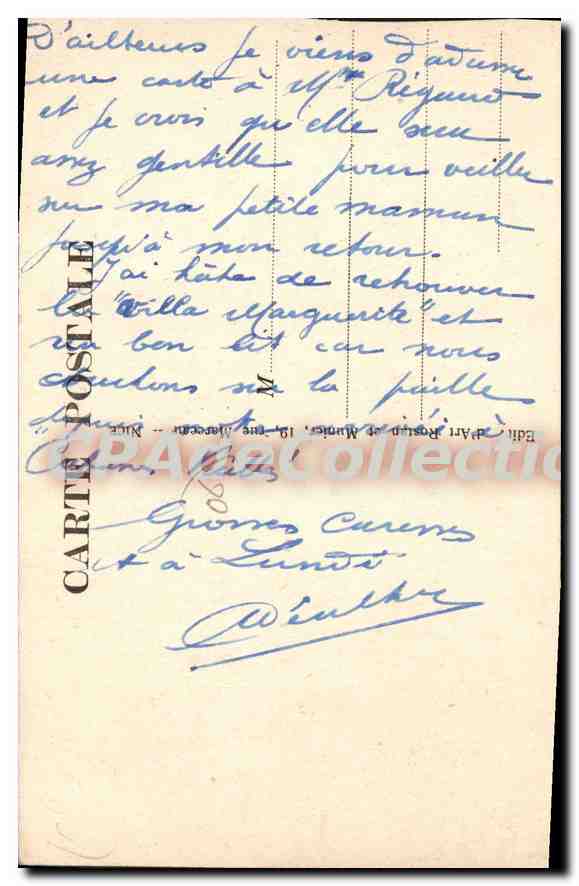 D'ailleurs je viens d'adresser
une carte à Mme Régaud
et je crois qu'elle sera
assez gentille pour veiller
sur ma petite maman
jusqu'à mon retour.
J'ai hâte de retrouver
la "Villa Marguerite" et
bon lit car nous
couchons sur la paille
Grosses Caresses
et à Lundi
CARTE POSTALE
M
Edit. d'Art Rostan et Munier, 12, rue Marceau -- Nice
CPA de Collection